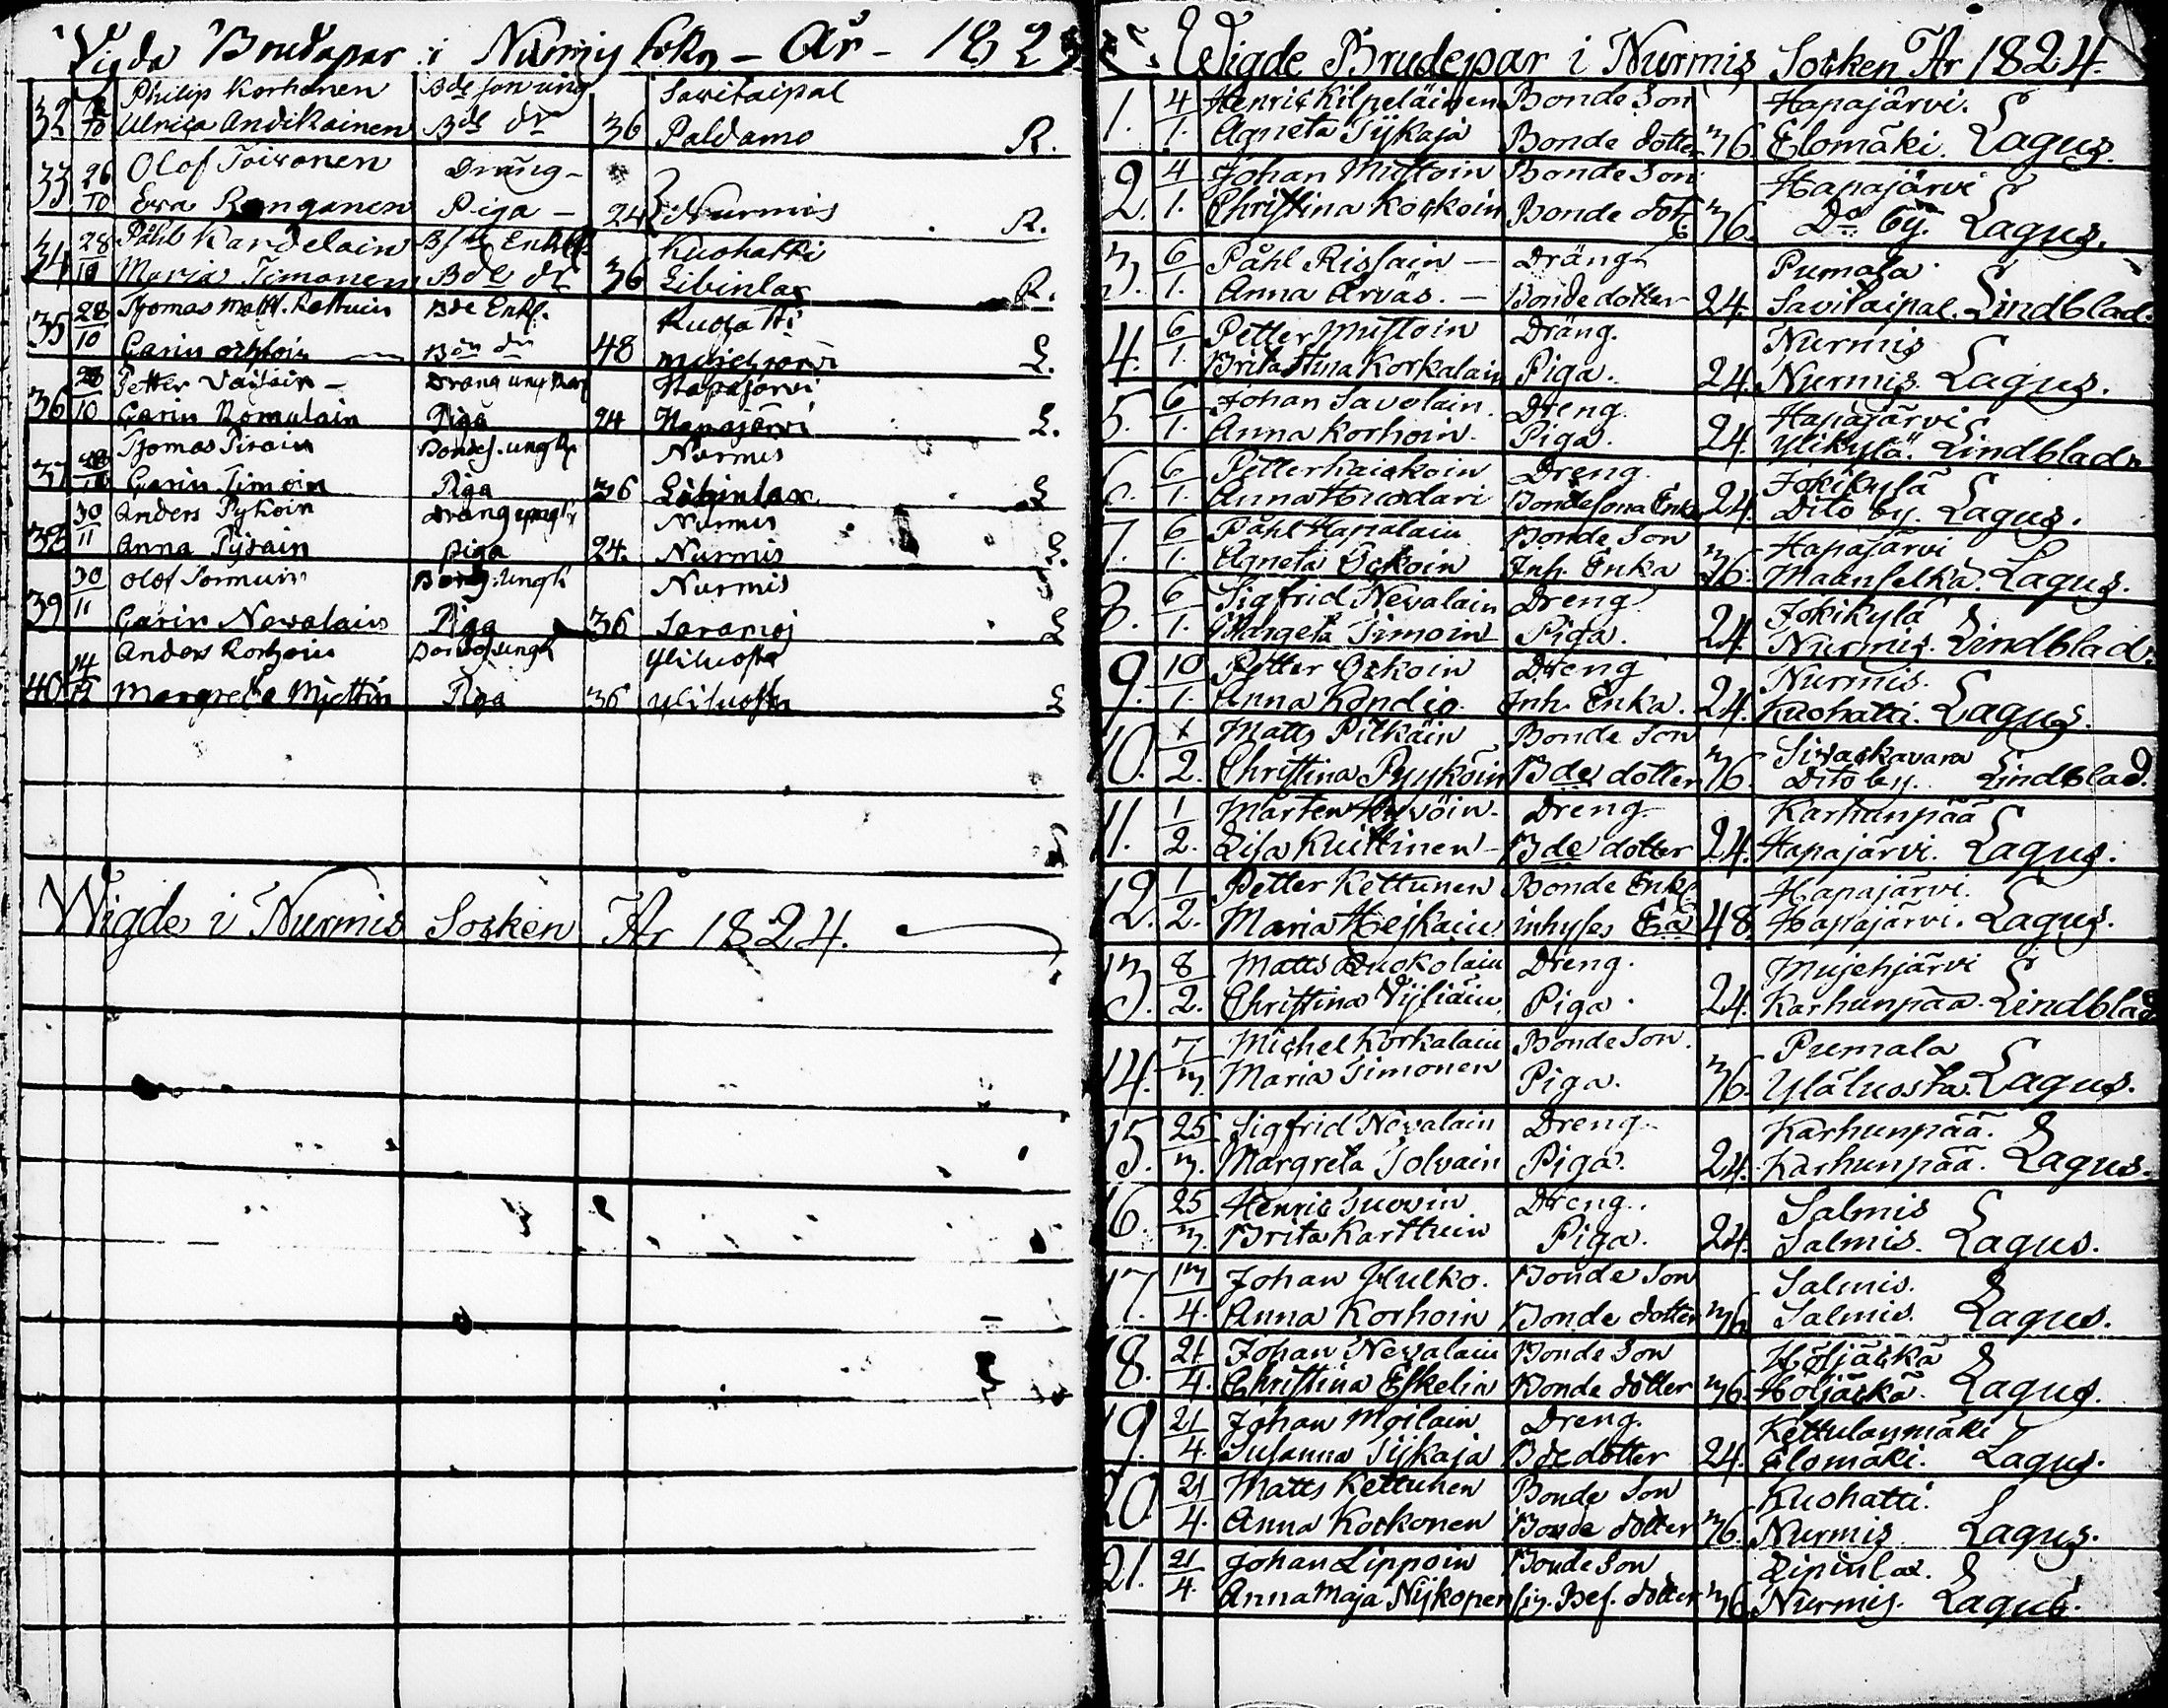 Vigda Brudapar i Nurmis Sokn - År - 1823
32 10 Philip Korhonen Bde son ung Savitaipal
Ulrica Andikainen Bde dr 36 Paldamo R.
33 26/10 Olof Toivonen Dräng -
Ewa Ronganen Piga - 24 Nurmis R.
34 28/10 Påhl Kardelain Enkl. Kuohatti
Maria Timonen Bde dr 36 Libinlax R.
35 28/10 Thomas Matts. Kettuin Bde Enkl. Kuohatti
Carin 48 Mujehjärvi L.
36 28/10 Petter Väisäin - Dräng ungkarl Hapajärvi
Carin Romulain Piga 24 Hapajärvi L.
37 28/10 Thomas Piroin Bondes. ungk Nurmis
Carin Timoin Piga 36 Libinlax L
38 30/11 Anders Pykoin Dräng ungk Nurmis
Anna Pysäin piga 24. Nurmis L.
39 30/11 Olof Sormuin Bonds: ungk Nurmis
Carin Nevalain Piga 36 Saramoj L
40 14/12 Anders Korhoin Bondes ungk Yliluosta
Margreta Miettin Piga 36 Yliluosta L
Wigde i Nurmis Socken År 1824.
Wigde Brudepar i Nurmis Socken År 1824.
1. 4/1. Henric Kilpeläinen Bonde Son Hapajärvi.
Agneta Tijkaja Bonde dotter 36. Elomäki. Lagus.
2. 4/1. Johan Mustoin Bonde Son Hapajärvi
Christina Kockoin Bonde dott: 36. Do by. Lagus.
3. 6/1. Påhl Rissain - Dräng Pumala
Anna Arväs. - Bonde dotter 24. Savitaipal. Lindblad.
4. 6/1. Petter Mustoin Dräng. Nurmis
Brita Stina Korkalain Piga. 24. Nurmis. Lagus.
5. 6/1. Johan Savolain. Dreng. Hapajärvi
Anna Korhoin. Piga. 24. Ylikylä. Lindblad.
6. 6/1. Petter Kaickoin Dreng. Jokikylä
Anna Huodari Bondesona Enka 24. Dito by. Lagus.
7. 6/1. Påhl Hapalain Bonde Son Hapajärvi
Agneta Ockoin Inh. Enka 36. Maanselkä. Lagus.
8. 6/1. Sigfrid Nevalain Dreng. Jokikylä
Margeta Timoin Piga. 24. Nurmis. Lindblad.
9. 10/1. Petter Ockoin Dreng Nurmis.
Anna Kondio. Inh. Enka. 24. Kuohatti. Lagus.
10. 1/2. Matts Pitkäin Bonde Son Sivackavara
Christina Pyykoin Bde dotter 36 Dito by. Lindblad.
11. 1/2. Mårten Hyvöin. Dreng. Karhunpää
Lisa Kuittinen - Bde dotter 24. Hapajärvi. Lagus.
12. 1/2. Petter Kettunen Bonde Enkl Hapajärvi.
Maria Hejkain inhyses Ea 48. Hapajärvi. Lagus.
13. 8/2. Matts Ruokolain Dreng. Mujehjärvi
Christina Vijliäin Piga. 24. Karhunpää. Lindblad
14. 7/3. Michel Korkalain Bonde Son. Pumala
Maria Timonen Piga. 36. Yläluosta. Lagus.
15. 25/3. Sigfrid Nevalain Dreng. Karhunpää.
Margreta Tolvain Piga. 24. Karhunpää. Lagus.
16. 25/3. Henric Suovin Dreng. Salmis
Brita Karttuin Piga. 24. Salmis. Lagus.
17. 13/4. Johan Hulko. Bonde Son Salmis.
Anna Korhoin Bonde dotter 36 Salmis. Lagus.
18. 21/4. Johan Nevalain Bonde Son Höljäckä
Christina Eskelin Bonde dotter 36. Höljäckä. Lagus.
19. 21/4. Johan Moilain Dreng. Kettulanmäki
Susanna Tijkaja Bde dotter 24. Elomäki. Lagus.
20. 21/4. Matts Kettunen Bonde Son Kuohatti.
Anna Kockonen Bonde dotter 36. Nurmis Lagus.
21. 21/4 Johan Lippoin Bonde Son Lipinlax.
Anna Maja Nijkopen dotter 36 Nurmis. Lagus.